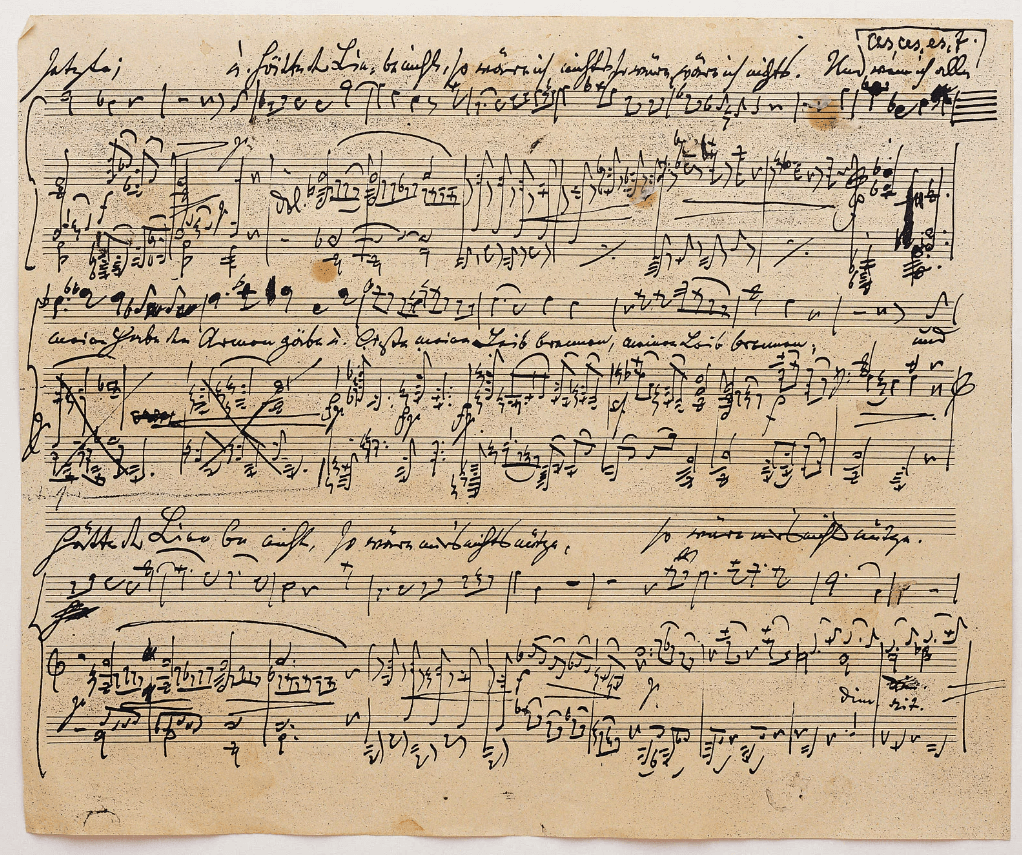 ces, ces, es, f.
setzte; u. hätte d. Liebe nicht, so wäre ich nichts, so wäre, wäre ich nichts. Und wenn ich alle
dol.
meine Habe den Armen gäbe u. ließe meinen Leib brennen, meinen Leib brennen; und
hätte der Liebe nicht, so wäre mir's nichts nütze, so wäre mir's nichts nütze.
dim. rit.